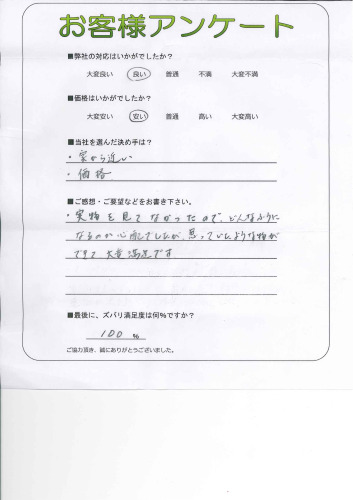 お客様アンケート
■弊社の対応はいかがでしたか？
大変良い 良い 普通 不満 大変不満
■価格はいかがでしたか？
大変安い 安い 普通 高い 大変高い
■当社を選んだ決め手は？
・家から近い
・価格
■ご感想・ご要望などをお書き下さい。
・実物を見てなかったので、どんなふうに
なるのか心配でしたが、思っていたような物が
できて大変満足です
■最後に、ズバリ満足度は何％ですか？
100 %
ご協力頂き、誠にありがとうございました。